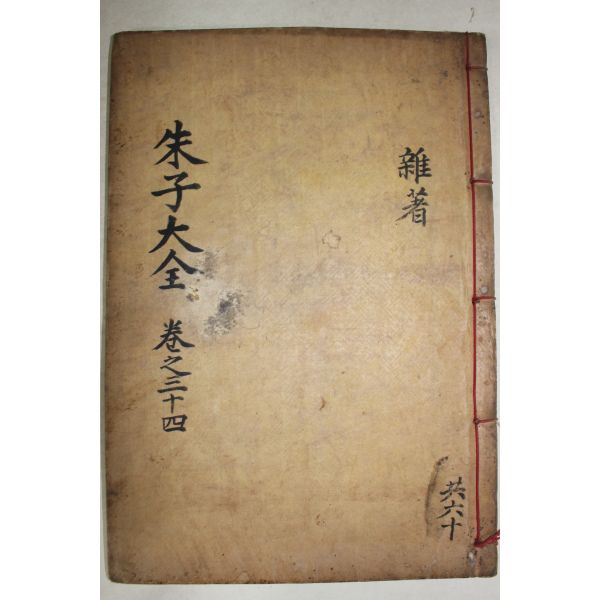 雜著
朱子大全 卷之三十四
共六十